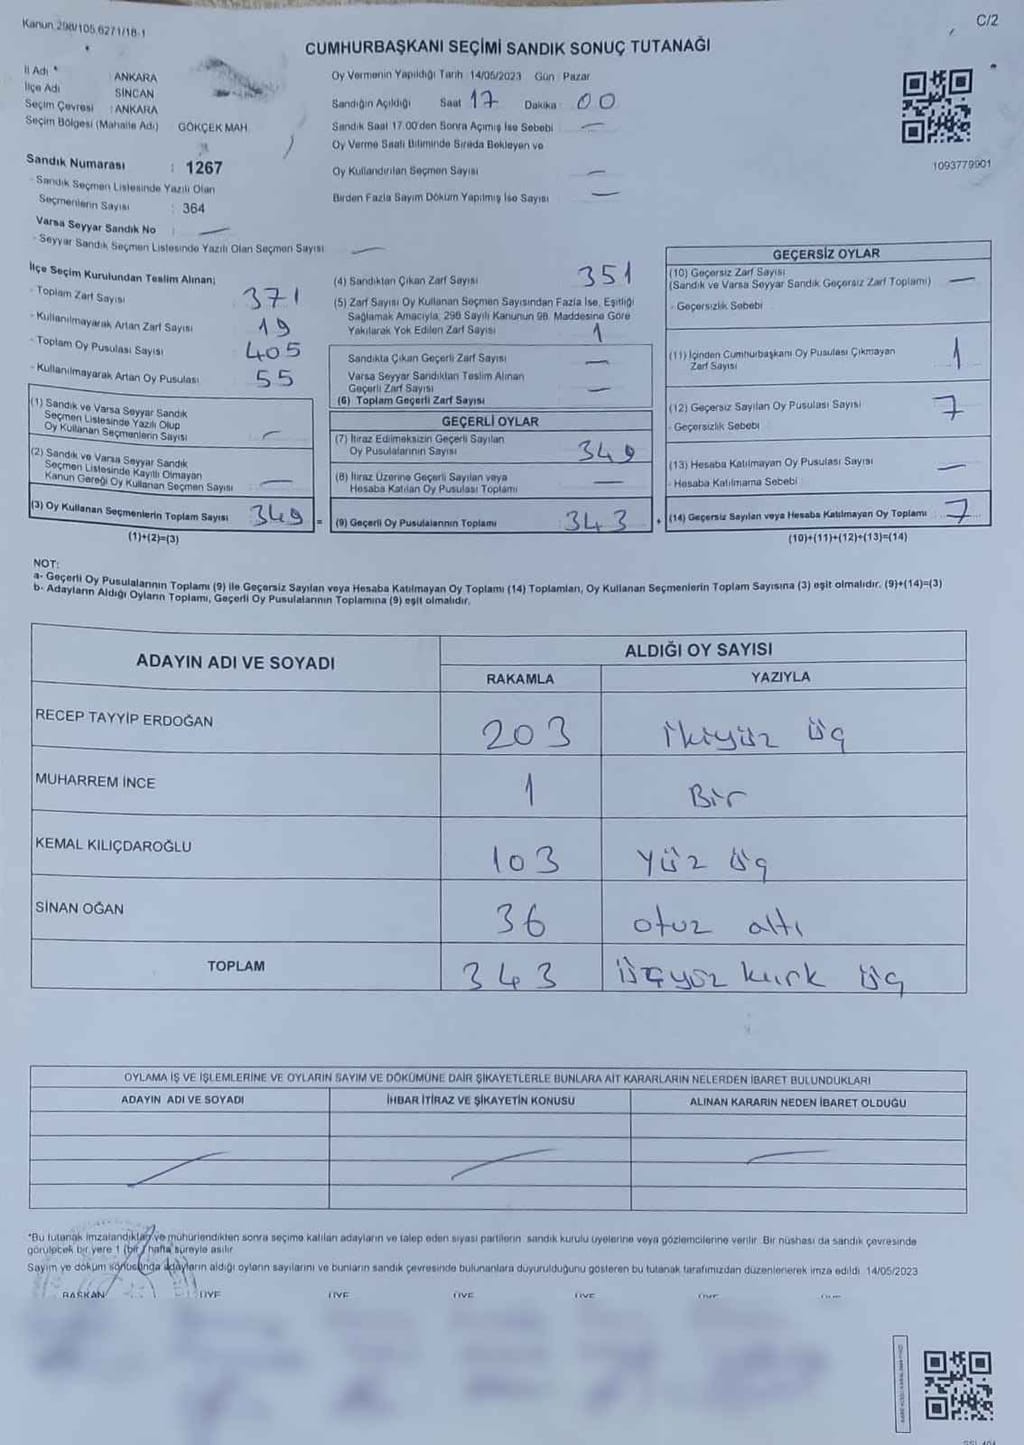 Kanun 298/105 6271/18-1
C/2
CUMHURBAŞKANI SEÇİMİ SANDIK SONUÇ TUTANAĞI
İl Adı : ANKARA
İlçe Adı SİNCAN
Seçim Çevresi : ANKARA
Seçim Bölgesi (Mahalle Adı) GÖKÇEK MAH.
Sandık Numarası : 1267
- Sandık Seçmen Listesinde Yazılı Olan
Seçmenlerin Sayısı : 364
Varsa Seyyar Sandık No : —
- Seyyar Sandık Seçmen Listesinde Yazılı Olan Seçmen Sayısı —
Oy Vermenin Yapıldığı Tarih 14/05/2023 Gün Pazar
Sandığın Açıldığı Saat 17 Dakika : 00
Sandık Saat 17.00'den Sonra Açımış İse Sebebi —
Oy Verme Saati Bitiminde Sırada Bekleyen ve
Oy Kullandırılan Seçmen Sayısı —
Birden Fazla Sayım Döküm Yapılmış İse Sayısı —
1093779901
İlçe Seçim Kurulundan Teslim Alınan;
- Toplam Zarf Sayısı 371
- Kullanılmayarak Artan Zarf Sayısı 19
- Toplam Oy Pusulası Sayısı 405
- Kullanılmayarak Artan Oy Pusulası 55
(1) Sandık ve Varsa Seyyar Sandık
Seçmen Listesinde Yazılı Olup
Oy Kullanan Seçmenlerin Sayısı —
(2) Sandık ve Varsa Seyyar Sandık
Seçmen Listesinde Kayıtlı Olmayan
Kanun Gereği Oy Kullanan Seçmen Sayısı —
(3) Oy Kullanan Seçmenlerin Toplam Sayısı 349 =
(1)+(2)=(3)
(4) Sandıktan Çıkan Zarf Sayısı 351
(5) Zarf Sayısı Oy Kullanan Seçmen Sayısından Fazla İse, Eşitliği
Sağlamak Amacıyla, 298 Sayılı Kanunun 98. Maddesine Göre
Yakılarak Yok Edilen Zarf Sayısı 1
Sandıkta Çıkan Geçerli Zarf Sayısı —
Varsa Seyyar Sandıktan Teslim Alınan
Geçerli Zarf Sayısı —
(6) Toplam Geçerli Zarf Sayısı
GEÇERLİ OYLAR
(7) İtiraz Edilmeksizin Geçerli Sayılan
Oy Pusulalarının Sayısı 349
(8) İtiraz Üzerine Geçerli Sayılan veya
Hesaba Katılan Oy Pusulası Toplamı —
(9) Geçerli Oy Pusulalarının Toplamı 343 +
GEÇERSİZ OYLAR
(10) Geçersiz Zarf Sayısı
(Sandık ve Varsa Seyyar Sandık Geçersiz Zarf Toplamı) —
- Geçersizlik Sebebi
(11) İçinden Cumhurbaşkanı Oy Pusulası Çıkmayan
Zarf Sayısı 1
(12) Geçersiz Sayılan Oy Pusulası Sayısı 7
- Geçersizlik Sebebi
(13) Hesaba Katılmayan Oy Pusulası Sayısı —
- Hesaba Katılmama Sebebi
(14) Geçersiz Sayılan veya Hesaba Katılmayan Oy Toplamı 7
(10)+(11)+(12)+(13)=(14)
NOT:
a- Geçerli Oy Pusulalarının Toplamı (9) ile Geçersiz Sayılan veya Hesaba Katılmayan Oy Toplamı (14) Toplamları, Oy Kullanan Seçmenlerin Toplam Sayısına (3) eşit olmalıdır. (9)+(14)=(3)
b- Adayların Aldığı Oyların Toplamı, Geçerli Oy Pusulalarının Toplamına (9) eşit olmalıdır.
ADAYIN ADI VE SOYADI
ALDIĞI OY SAYISI
RAKAMLA YAZIYLA
RECEP TAYYİP ERDOĞAN 203 ikiyüz üç
MUHARREM İNCE 1 Bir
KEMAL KILIÇDAROĞLU 103 Yüz üç
SİNAN OĞAN 36 otuz altı
TOPLAM 343 üçyüz kırk üç
OYLAMA İŞ VE İŞLEMLERİNE VE OYLARIN SAYIM VE DÖKÜMÜNE DAİR ŞİKAYETLERLE BUNLARA AİT KARARLARIN NELERDEN İBARET BULUNDUKLARI
ADAYIN ADI VE SOYADI İHBAR İTİRAZ VE ŞİKAYETİN KONUSU ALINAN KARARIN NEDEN İBARET OLDUĞU
*Bu tutanak imzalandıktan ve mühürlendikten sonra seçime katılan adayların ve talep eden siyasi partilerin sandık kurulu üyelerine veya gözlemcilerine verilir. Bir nüshası da sandık çevresinde
görülecek bir yere 1 (bir) hafta süreyle asılır.
Sayım ve döküm sonucunda adayların aldığı oyların sayılarını ve bunların sandık çevresinde bulunanlara duyurulduğunu gösteren bu tutanak tarafımızdan düzenlenerek imza edildi. 14/05/2023
BAŞKAN ÜYE ÜYE ÜYE ÜYE